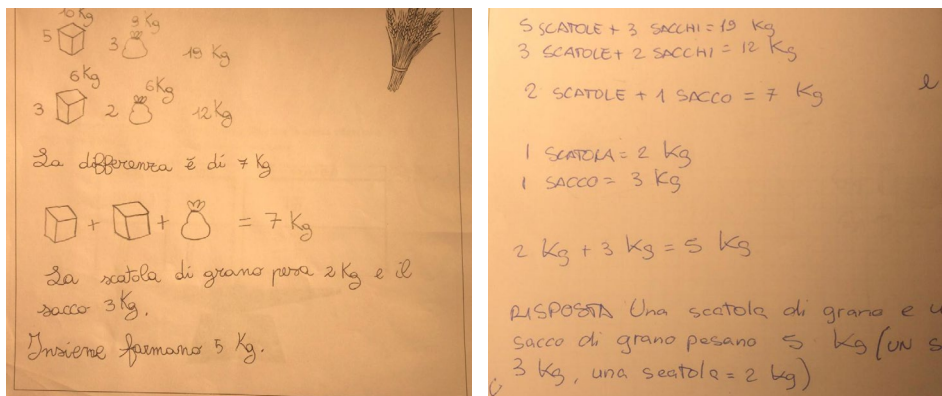 10 Kg 9 Kg
5 3 19 Kg
6 Kg 6 Kg
3 2 12 Kg
La differenza è di 7 Kg
+ + = 7 Kg
La scatola di grano pesa 2 Kg e il
sacco 3 Kg.
Insieme formano 5 Kg.
5 SCATOLE + 3 SACCHI = 19 Kg
3 SCATOLE + 2 SACCHI = 12 Kg
2 SCATOLE + 1 SACCO = 7 Kg
1 SCATOLA = 2 Kg
1 SACCO = 3 Kg
2 Kg + 3 Kg = 5 Kg
RISPOSTA Una scatola di grano e u
sacco di grano pesano 5 Kg (UN S
3 Kg, una scatola = 2 Kg)